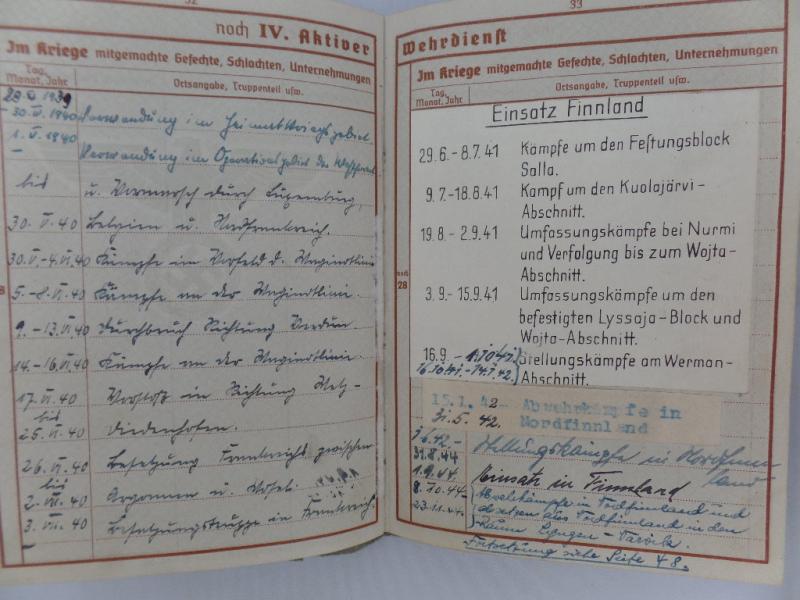 32
noch IV. Aktiver
Im Kriege mitgemachte Gefechte, Schlachten, Unternehmungen
Tag, Monat, Jahr
Ortsangabe, Truppenteil usw.
1939
- 30. IV. 1940 Verwendung im Heimatkriegsgebiet.
1. V. 1940 Verwendung im Operationsgebiet der
-
bis u. Vormarsch durch Luxemburg,
30. V. 40 Belgien u. Nordfrankreich.
30. V. - 4. VI. 40 Kämpfe im Vorfeld d. Maginotlinie
5. - 8. VI. 40 Kämpfe an der Maginotlinie.
9. - 13. VI. 40 Durchbruch Richtung Verdun.
14. - 16. VI. 40 Kämpfe an der Maginotlinie.
17. VI. 40 Vorstoß in Richtung Metz-
bis
25. VI. 40 Diedenhofen.
26. VI. 40 Besetzung Frankreichs zwischen
bis
2. VII. 40 Argonnen u. Mosel.
3. VII. 40 Besetzungstruppe in Frankreich.
-
33
Wehrdienst
Im Kriege mitgemachte Gefechte, Schlachten, Unternehmungen
Tag, Monat, Jahr
Ortsangabe, Truppenteil usw.
Einsatz Finnland
29.6.- 8.7.41 Kämpfe um den Festungsblock
Salla.
9.7.-18.8.41 Kampf um den Kuolajärvi-
Abschnitt.
19.8.- 2.9.41 Umfassungskämpfe bei Nurmi
und Verfolgung bis zum Wojta-
Abschnitt.
noch
28
3.9.- 15.9.41 Umfassungskämpfe um den
befestigten Lyssaja-Block und
Wojta-Abschnitt.
16.9. - Stellungskämpfe am Werman-
Abschnitt.
15.1.42- Abwehrkämpfe in
31.5.42. Nordfinnland
1.6.42- Stellungskämpfe in Nordfinn-
31.8.44 land
1.9.44- Einsatz in Finnland
8.10.44- Abwehrkämpfe in Nordfinnland und
23.11.44. absetzen aus Nordfinnland in den
Raum Lyngen -
Fortsetzung siehe Seite 48.